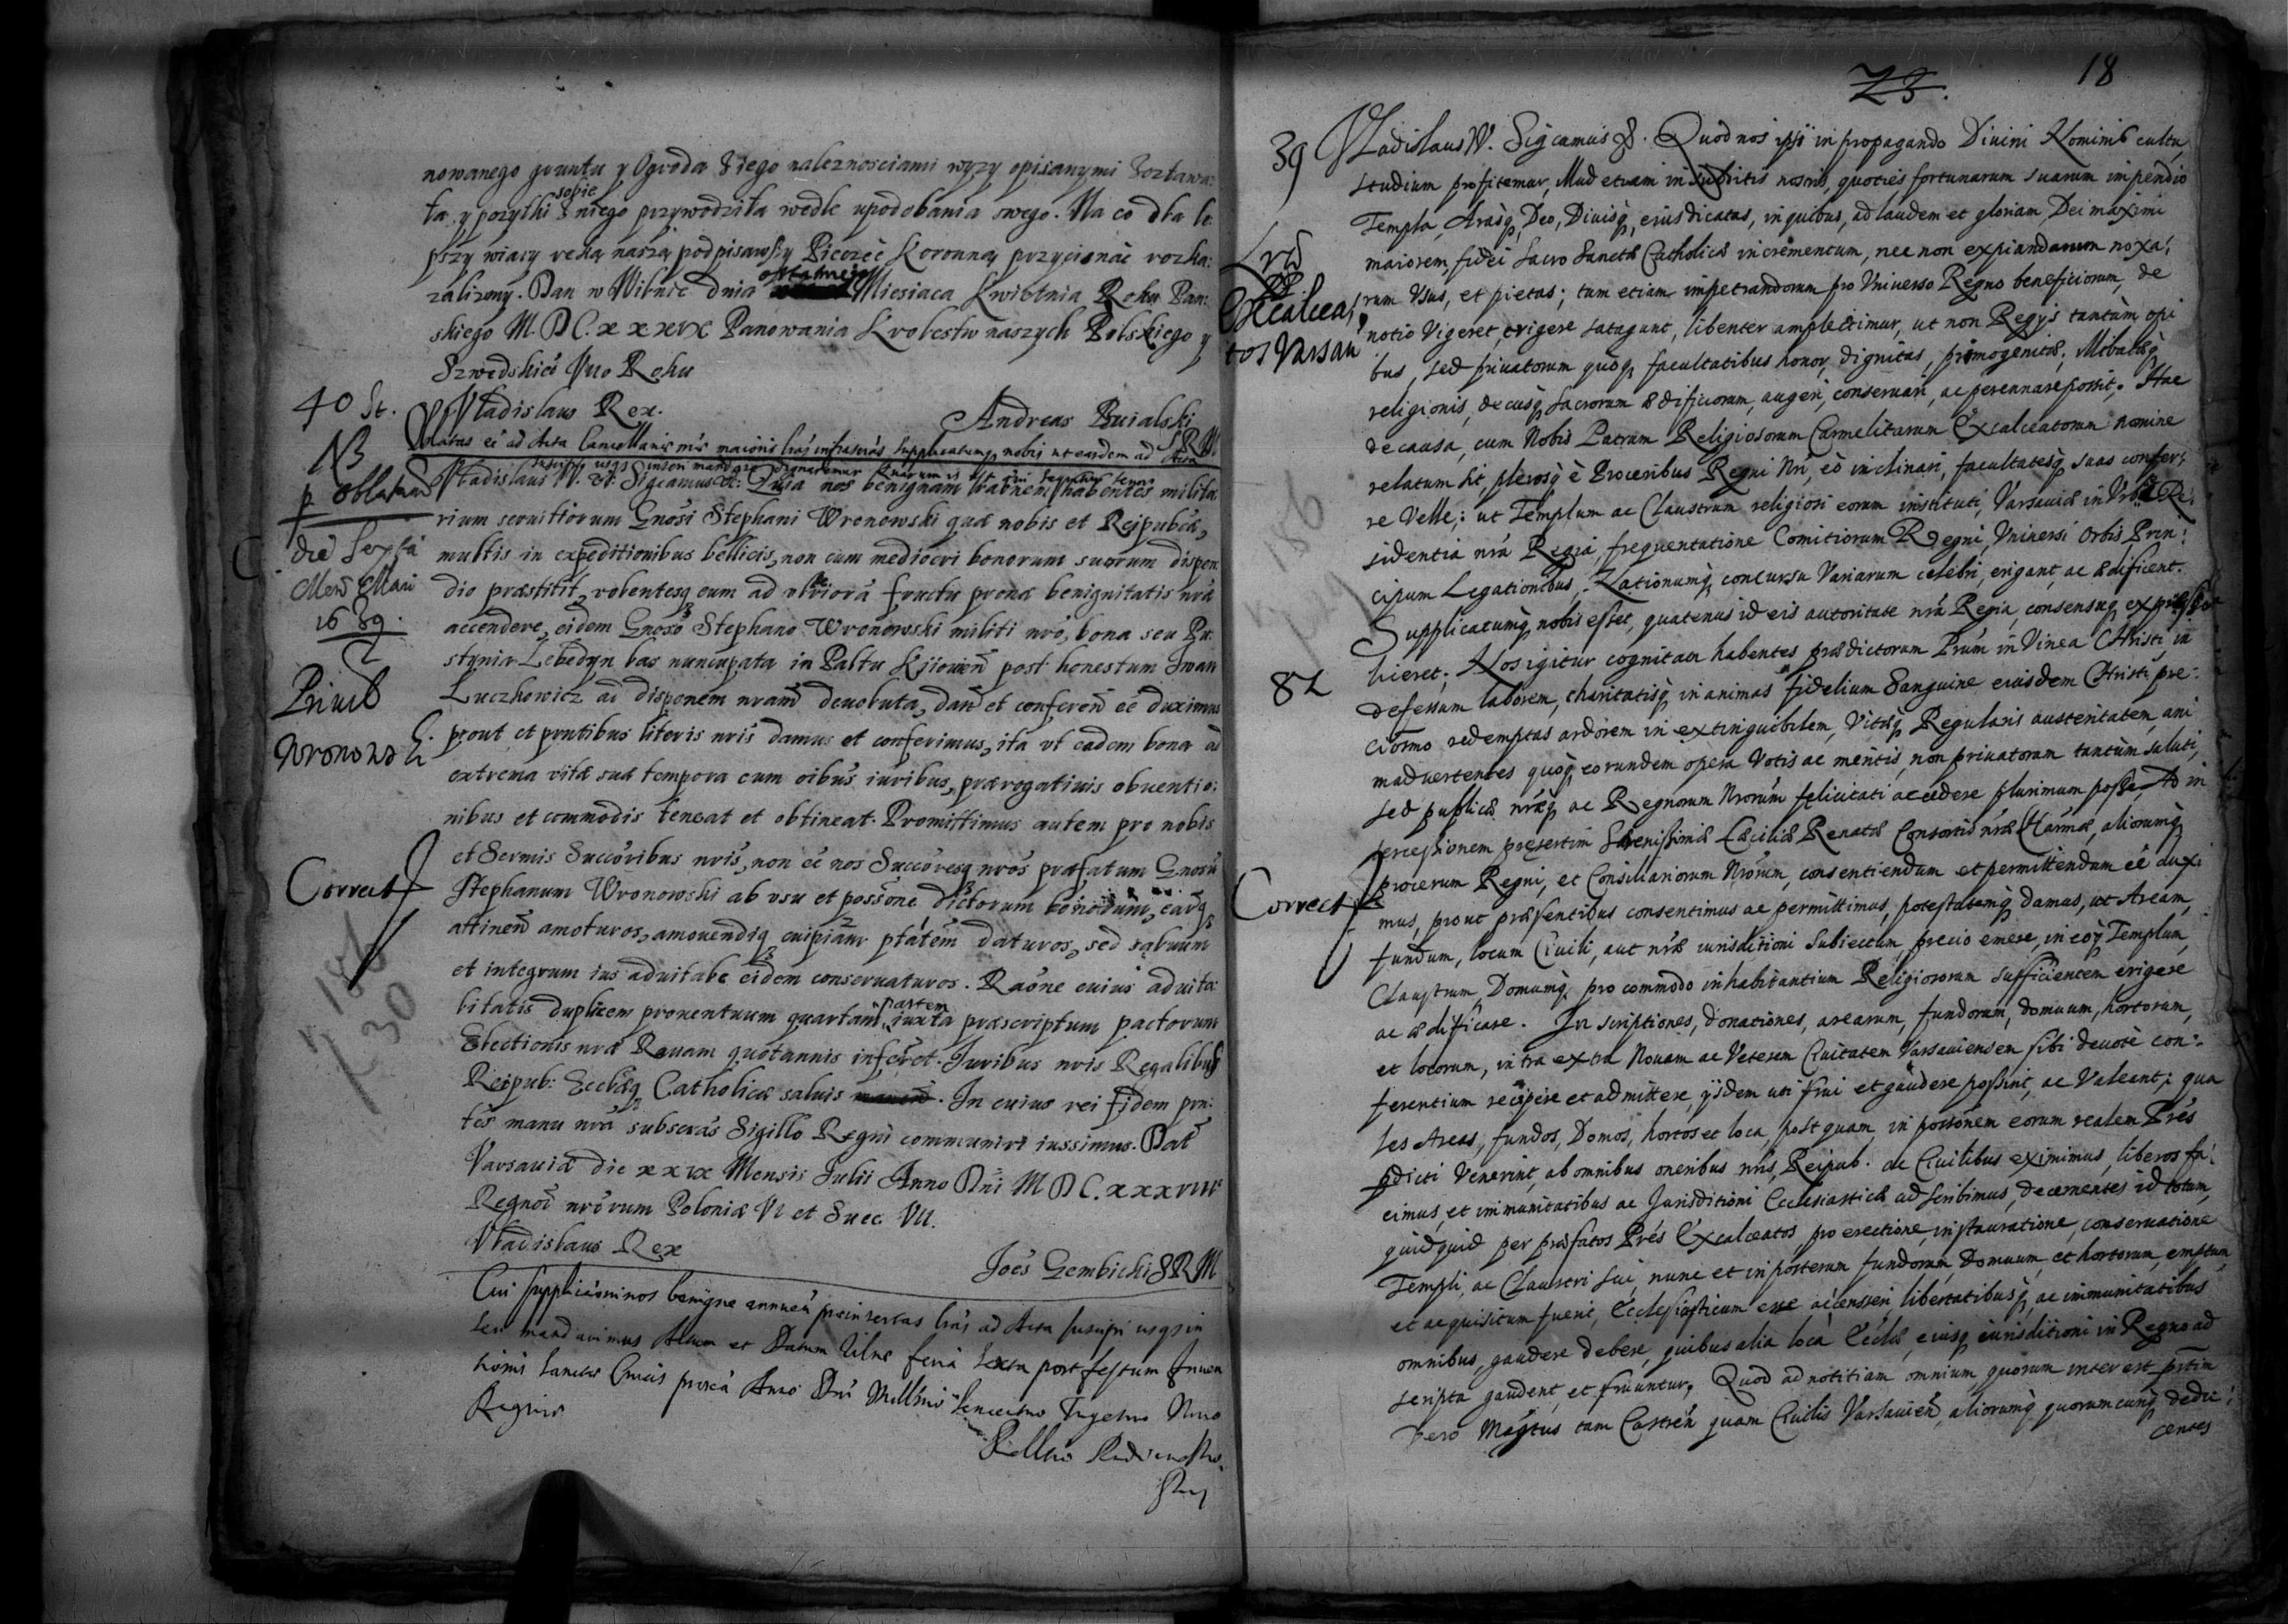 nowanego gruntu y Ogroda z iego naleznosciami wyzy opisanymi zostawa:
ła y pozytki sobie z niego przywodziła wedle upodobania swego. Na co dla le
pszy wiary ręką naszą podpisawszy Pieczęć Koronną przycisnąć rozka:
zaliśmy. Dan w Wilnie dnia ostatniego Miesiaca Kwietnia Roku Pan:
skiego M.DC.xxxix Panowania Krolestw naszych Polskiego y
Szwedskie° Vii° Roku
Vladislaus Rex.
Andreas Buialski
SRM
40 St.
NB
p oblatam
die sexta
Mens Maii
1639.
Privil
Wronowski
Correct
188
30
Vladislaus IV. Sigcamus &: Quia nos benignam raõnem habentes milita
rium seruitiorum Gnosi Stephani Wronowski quæ nobis et Reipublcæ,
multis in expeditionibus bellicis, non cum mediocri bonorum suorum dispen
dio præstitit, volentesq eum ad vlteriora fructu pronæ benignitatis nra
accendere, eidem Gnoso Stephano Wronowski militi nrõ, bona seu Pu:
stynia Lebedyn bas nuncupata in Palatu Kijouien post honestum Iwan
Luczkowicz ad disponem nram deuoluta, dan et conferen ee duximus
prout et pntibus literis nris damus et conferimus, ita vt eadem bona ad
extrema vitæ suæ tempora cum oibus iuribus, prærogatiuis obuentio:
nibus et commodis teneat et obtineat. Promittimus autem pro nobis
et Sermis Succoribus nris, non ee nos Succoresq nros præfatum Gnosu
Stephanum Wronowski ab vsu et possone dictorum bonorum, earq
attinen amoturos, amouendiq cuipiam ptatem daturos, sed saluum
et integrum ius aduitale eidem conseruaturos. Raõne cuius aduita:
litatis duplicem prouentuum quartam partem iuxta præscriptum pactorum
Electionis nræ Rauam quotannis inferet. Iuribus nris Regalibus
Reipub: Ecclæq Catholicæ saluis. In cuius rei fidem prn:
tes manu nra subscras Sigillo Regni communiri iussimus. Dat
Varsauiæ die xxix Mensis Iulii Anno Dni MDC.xxxviii
Regnor nrorum Poloniæ VI et Suec. VII.
Vladislaus Rex
Joes Gembicki SRM
Cui supplicaõni nos benigne annuen præinsertas lras ad Acta suscipi usq in
seri mandauimus Actum et Datum Vilnæ feria sexta post festum Inuen
tionis Sanctæ Crucis proxa Anno Dni Millmo Sexcentmo Trigesmo Nono
Regnor
18
23.
39
Excalcea,
tos Varsau
82
Correct
186
Vladislaus IV. Sigcamus &. Quod nos ipsi in propagando Diuini Nominis cultu,
studium profitemur, Illud etiam in subditis nostris, quoties fortunarum suarum impendio
Templa, Arasq, Deo, Diuisq, eius dicatas, in quibus, ad laudem et gloriam Dei maximi
maiorem, fidei Sacro Sanctæ Catholicæ incrementum, nec non expiandarum noxa:
rum Vsus, et pietas; tum etiam impetrandorum pro Vniuerso Regno beneficiorum, de
notio Vigeret, erigere satagunt, libenter amplectimur, ut non Regijs tantùm opi
bus, sed priuatorum quoq facultatibus honor, dignitas,
religionis, decusq sacrorum ædificiorum, augeri, conseruari, ac perennare possit. Hac
de causa, cum Nobis Patrum Religiosorum Carmelitarum Excalceatorum nomine
relatum sit, plerosq è Proceribus Regni Nri, eò inclinari, facultatesq suas confer:
re Velle,: ut Templum ac Claustrum religiosi eorum instituti, Varsauiæ in Vrbe Re:
sidentia nra Regia, frequentatione Comitiorum Regni, Vniuersi Orbis Prin:
cipum Legationibus, Nationumq concursu Variarum celebri, erigant, ac ædificent.
Supplicatumq nobis esset, quatenus id eis autoritate nra Regia, consensuq expresso
lieret; Nos igitur cognitam habentes prædictorum Prum in Vinea Christi, in
defessum laborem, charitatisq in animas fidelium Sanguine eiusdem Christi pre:
ciosmo redemptas ardorem inextinguibilem, Vitæq Regularis austeritatem, ani
maduertentes quoq eorundem opera Votis ac meritis, non priuatorum tantùm saluti,
sed publicæ nræq ac Regnorum Nrorum felicitati accedere plurimum posse, Ad in
tercessionem presertim Serenissimæ Cæciliæ Renatæ Consortis nræ Charmæ, aliorumq
procerum Regni, et Consiliariorum Nrorum, consentiendum et permittendum ee duxi
mus, prout præsentibus consentimus ac permittimus, potestatemq damus, ut Aream,
fundum, locum Ciuili, aut nræ iurisditioni Subiectum, precio emere, in eoq Templum,
Claustrum, Domumq, pro commodo inhabitantium Religiosorum sufficientem erigere
ac ædificare. Inscriptiones, donationes, arearum, fundorum, domuum, hortorum,
et locorum, intra extra Nouam ac Veterem Ciuitatem Varsauiensem sibi deuotè con:
ferentium recipere et admittere, ijsdem uti frui et gaudere possint, ac Valeant; qua
les Areas, fundos, Domos, hortos et loca, post quam in possonem eorum realem Pres
pdicti Venerint, ab omnibus oneribus nris, Reipub. ac Ciuilibus eximimus, liberos fa:
cimus, et immunitatibus ac Jurisditioni Ecclesiasticæ adscribimus, decernentes id totum,
quidquid per præfatos Pres Excalceatos pro erectione, instauratione, conseruatione
Templi, ac Claustri sui, nunc et in posterum fundorum, Domuum, et hortorum, emptum
et acquisitum fuerit, Ecclesiasticum esse, accenseri, libertatibusq, ac immunitatibus
omnibus, gaudere debere, quibus alia loca Ecclæ, eiusq iurisditioni in Regno ad
scripta gaudent, et fruuntur. Quod ad notitiam omnium quorum interest prtim
vero Mgtus tam Castren quam Ciuilis Varsauien, aliorumq quorumcunq dedu:
centes